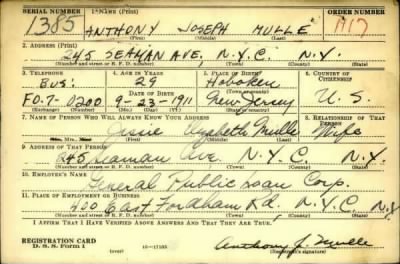 SERIAL NUMBER 1. NAME (Print) ORDER NUMBER
1385 ANTHONY JOSEPH MULLE 1117
(First) (Middle) (Last)
2. ADDRESS (Print)
245 SEAMAN AVE, N.Y.C. N.Y.
(Number and street or R. F. D. number) (Town) (County) (State)
3. TELEPHONE 4. AGE IN YEARS 5. PLACE OF BIRTH 6. COUNTRY OF CITIZENSHIP
BUS: 29 Hoboken
DATE OF BIRTH (Town or county)
FO.7-0200 9-23-1911 New Jersey U.S.
(Exchange) (Number) (Mo.) (Day) (Yr.) (State or country)
7. NAME OF PERSON WHO WILL ALWAYS KNOW YOUR ADDRESS 8. RELATIONSHIP OF THAT PERSON
Jessie Elizabeth Mulle Wife
(Mr., Mrs., Miss) (First) (Middle) (Last)
9. ADDRESS OF THAT PERSON
245 Seaman Ave. N.Y.C. N.Y.
(Number and street or R. F. D. number) (Town) (County) (State)
10. EMPLOYER'S NAME
General Public Loan Corp.
11. PLACE OF EMPLOYMENT OR BUSINESS
400 East Fordham Rd. N.Y.C. N.Y.
(Number and street or R. F. D. number) (Town) (County) (State)
I AFFIRM THAT I HAVE VERIFIED ABOVE ANSWERS AND THAT THEY ARE TRUE.
REGISTRATION CARD
D. S. S. Form 1 (over) 16—17105 Anthony J. Mulle
(Registrant's signature)